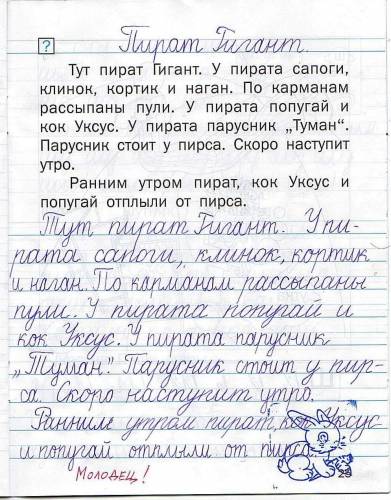 ?
Пират Гигант.
Тут пират Гигант. У пирата сапоги,
клинок, кортик и наган. По карманам
рассыпаны пули. У пирата попугай и
кок Уксус. У пирата парусник „Туман“.
Парусник стоит у пирса. Скоро наступит
утро.
Ранним утром пират, кок Уксус и
попугай отплыли от пирса.
Тут пират Гигант. У пи-
рата сапоги, клинок, кортик
и наган. По карманам рассыпаны
пули. У пирата попугай и
кок Уксус. У пирата парусник
„Туман." Парусник стоит у пир-
са. Скоро наступит утро.
Ранним утром пират, кок Уксус
и попугай отплыли от пирса.
Молодец!
29